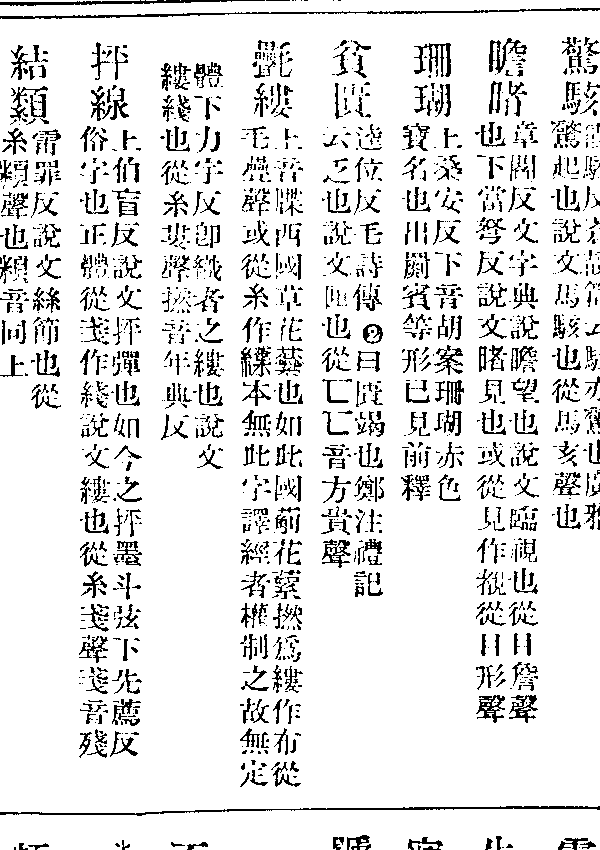 驚駭
驚起也說文馬駭也從馬亥聲也
瞻睹
章閻反文字典說瞻望也說文臨視也從目詹聲
也下當弩反說文睹見也或從見作覩從目形聲
珊瑚
上桑安反下音胡案珊瑚赤色
寶名也出罽賓等形已見前釋
貧匱
逵位反毛詩傳❷曰匱竭也鄭注禮記
云乏也說文匣也從匚匚音方貴聲
氎縷
上音牒西國草花蘂也如此國葪花蘂撚爲縷作布從
毛疊聲或從糸作緤本無此字譯經者權制之故無定
體下力宇反卽織者之縷也說文
縷綫也從糸婁聲撚音年典反
抨線
上伯盲反說文抨彈也如今之抨墨斗弦下先薦反
俗字也正體從戔作綫說文縷也從糸戔聲戔音殘
結纇
雷罪反說文絲節也從
糸頪聲也頪音同上